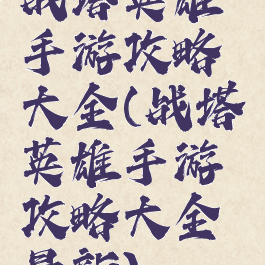 战塔英雄
手游攻略
大全(战塔
英雄手游
攻略大全
最新)